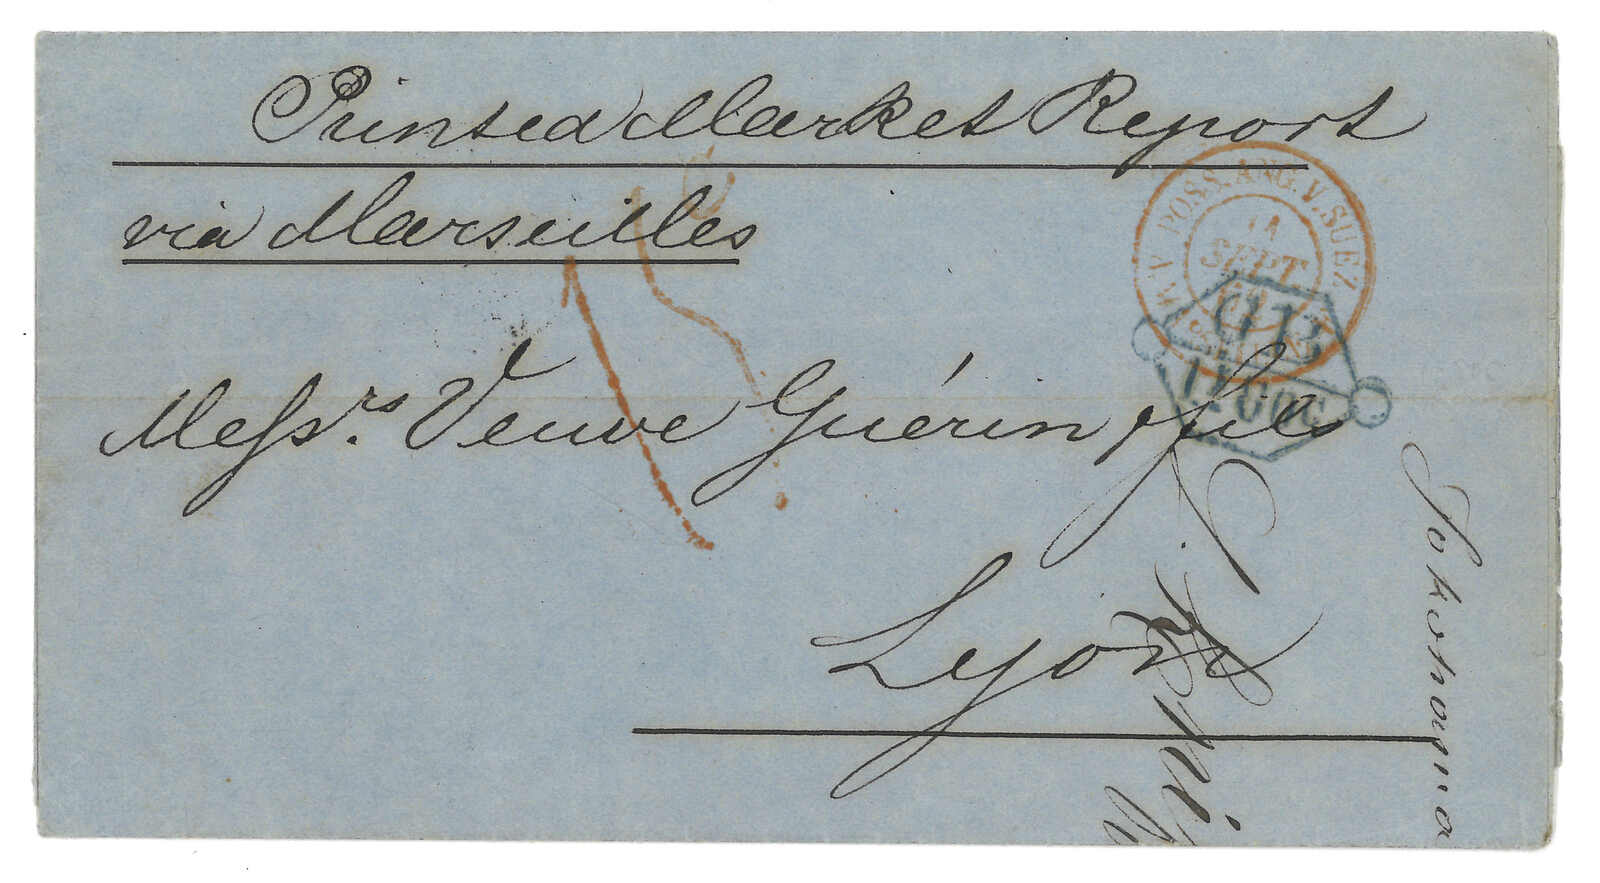 Printed Market Report
via Marseilles
Messrs. Veuve Guérin & fils
Lyon
Yokohama
POSS. ANG. V. SUEZ
14
SEPT
GB
1F60C